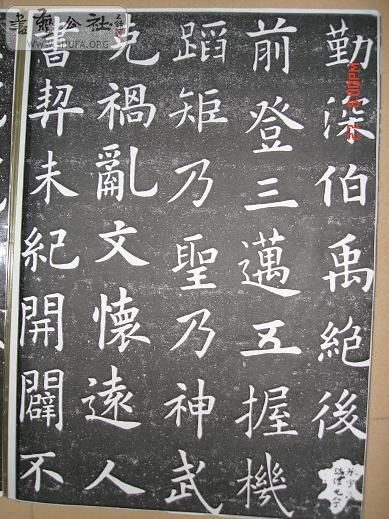 勤深伯禹絶後
前登三邁五握機
蹈矩乃聖乃神武
克禍亂文懷遠人
書契未紀開闢不
書藝公社
SHUFA.ORG